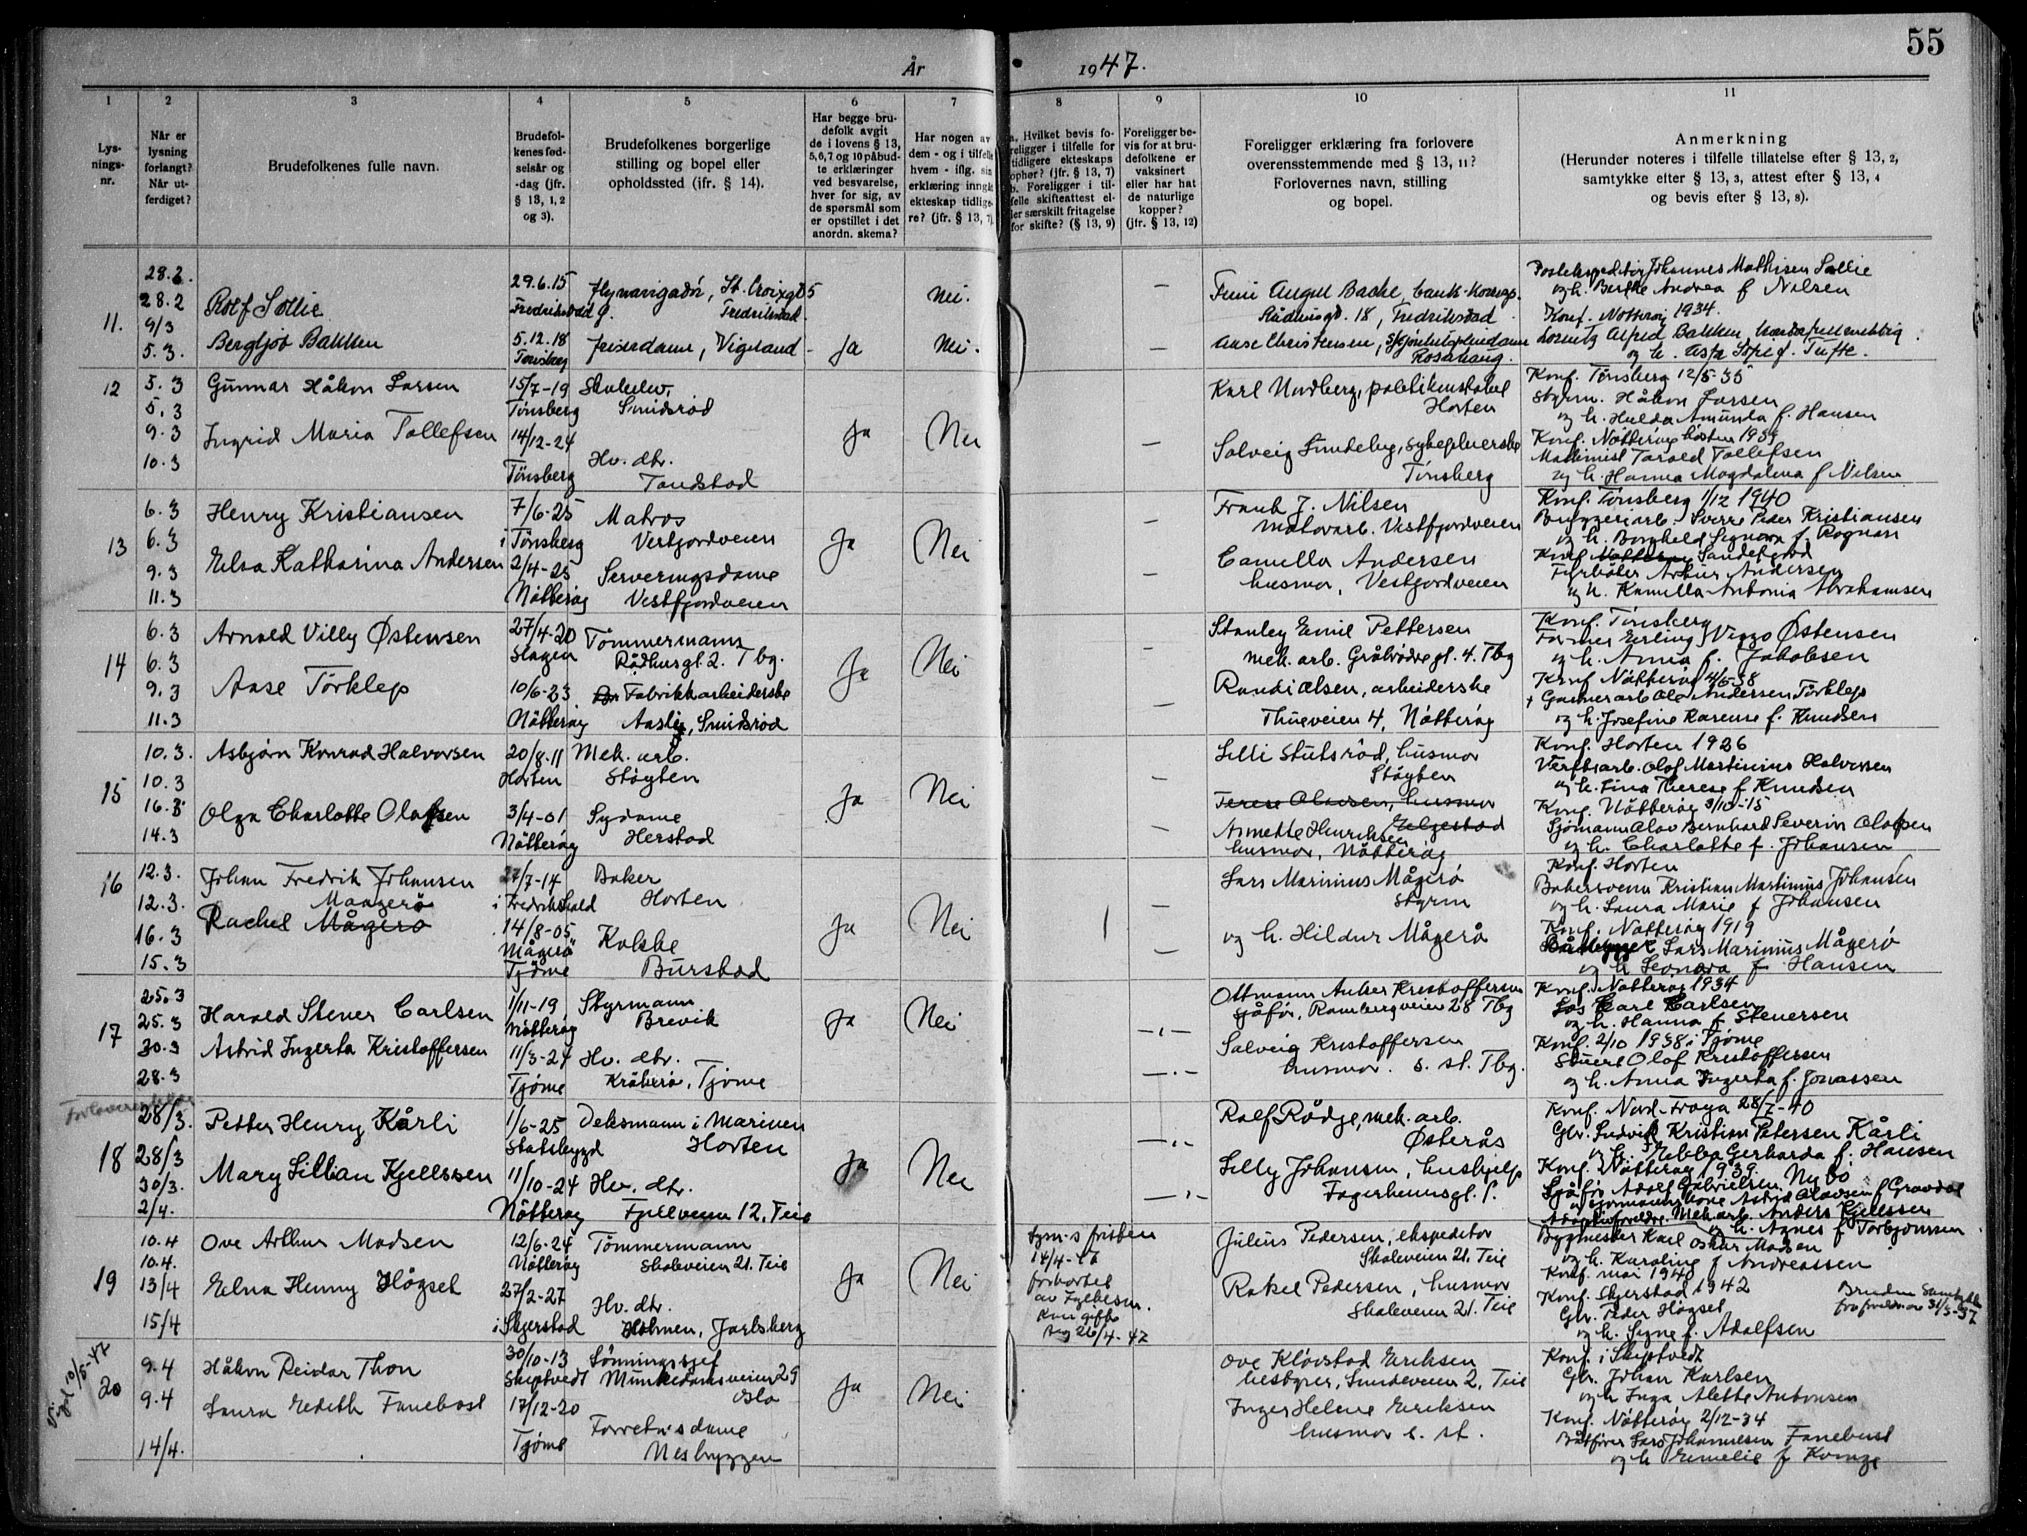 55
År 1947.
1 2 3 4 5 6 7 8 9 10 11
Lys-
nings-
nr.
Når er
lysning
forlangt?
Når ut-
ferdiget?
Brudefolkenes fulle navn.
Brudefol-
kenes fød-
selsår og
-dag (jfr.
§ 13, 1, 2
og 3).
Brudefolkenes borgerlige
stilling og bopel eller
opholdssted (jfr. § 14).
Har begge bru-
defolk avgit
de i lovens § 13,
5, 6, 7 og 10 påbud-
te erklæringer
ved besvarelse,
hver for sig, av
de spørsmål som
er opstillet i det
anordn. skema?
Har nogen av
dem - og i tilfelle
hvem - iflg. sin
erklæring inngått
ekteskap tidlige-
re? (jfr. § 13, 7).
a. Hvilket bevis fo-
religger i tilfelle for
tidligere ekteskaps
ophør? (jfr. § 13, 7)
b. Foreligger i til-
felle skifteattest el-
ler særskilt fritagelse
for skifte? (§ 13, 9)
Foreligger be-
vis for at bru-
defolkene er
vaksinert
eller har hat
de naturlige
kopper?
(jfr. § 13, 12)
Foreligger erklæring fra forlovere
overensstemmende med § 13, 11?
Forlovernes navn, stilling
og bopel.
Anmerkning
(Herunder noteres i tilfelle tillatelse efter § 13, 2,
samtykke efter § 13, 3, attest efter § 13, 4
og bevis efter § 13, 8).
11.
28.2.
28.2
9/3
5.3.
Rolf Sollie
Bergljot Bakken
29.6.15
Fredrikstad
5.12.18
Tønsberg
flynavigatør, St. Croixgt 5
Fredrikstad
frisdame, Vigeland
Ja
Nei.
Nei.
August Backe, bank
18, Fredrikstad
Aase Christensen,
Rosahaug.
Postekspeditør Johannes Mathisen Sollie
og h. Berthe Andrea f Nilsen
Konf. Nøtterøy 1934.
Alfred Bakken
og h. Asta Sofie f. Tufte.
12
5.3
5.3
9.3
10.3
Gunnar Håkon Larsen
Ingrid Maria Tollefsen
15/7-19
Tønsberg
14/12-24
Tønsberg
Skoleelev,
Smidsrød
Hv. dtr.
Tandstad
Ja
Nei
Karl Nordberg, politikonstabel
Horten
Solveig Lundeby, sykepleierske
Tønsberg
Konf. Tønsberg 12/5-35
Styrm. Håkon Larsen
og h. Hulda Amunda f. Hansen
Konf. Nøtterøy høsten 1939
Maskinist Tarald Tollefsen
og h. Hanna Magdalena f Nilsen
13
6.3
6.3
9.3
11.3
Henry Kristiansen
Elsa Katharina Andersen
7/6-25
i Tønsberg
2/4-25
Nøtterøy
Matros
Vestfjordveien
Serveringsdame
Vestfjordveien
Ja
Nei
Frank J. Nilsen
motorarb. Vestfjordveien
Camilla Andersen
husmor, Vestfjordveien
Konf. Tønsberg 1/12 1940
Bryggeriarb. Sverre Peder Kristiansen
og h. Borghild Signora f. Rognan
Konf. Nøtterøy Sandefjord
Fyrbøter Arthur Andersen
og h. Kamilla Antonia Abrahamsen
14
6.3
6.3
9.3
11.3
Arnold Villy Østensen
Aase Torklep
27/4-20
Slagen
10/6-23
Nøtterøy
Tømmermann
Rådhusgt 2. Tbg.
Fabrikkarbeiderske
Aasly, Smidsrød
Ja
Nei
Stanley Emil Pettersen
mek. arb. Gråbrødregt. 4. Tbg
Randi Olsen, arbeiderske
Thueveien 4, Nøtterøy
Konf. Tønsberg
Former Erling Viggo Østensen
og h. Anna f. Jakobsen
Konf Nøtterøy 4/6-38
+ Gartnerarb Ola Andersen Torklep
og h. Josefine Karense f. Knudsen
15
10.3.
10.3
16.3
14.3
Asbjørn Konrad Halvorsen
Olga Charlotte Olafsen
20/8.11
Horten
3/4-01
Nøtterøy
Mek. arb.
Støyten
Sydame
Herstad
Ja
Nei
Lilli Stutsrød, husmor
Støyten
Terese Olausen, husmor
Elgestad
Annette Henriksen
husmor, Nøtterøy
Konf. Horten 1926
Verftsarb. Olof Martinius Halvorsen
og h. Lina Therese f Knudsen
Konf. Nøtterøy 3/10-15
Sjømann Olav Bernhard Severin Olafsen
og h. Charlotte f. Johansen
16
12.3.
12.3.
16.3
15.3
Johan Fredrik Johansen
Maagerø
Rachel Mågerø
27/7-14
i Fredrikshald
14/8-05
Mågerø
Tjøme
Baker
Horten
Kokke
Burstad
Ja
Nei
Lars Marinius Mågerø
Styrm
og h. Hildur Mågerø
Konf. Horten
Bakersvenn Kristian Martinius Johansen
og h. Laura Marie f Johansen
Konf. Nøtterøy 1919
Lars Marinius Mågerø
og h Leonora f Hansen
17
25.3
25.3
30.3
28.3
Harald Stener Carlsen
Astrid Ingerta Kristoffersen
1/11-19
Nøtterøy
11/3-24
Tjøme
Styrmann
Brevik
Hv. dtr.
Kråkerø, Tjøme
Ja
Nei
Ottmann Anker Kristoffersen
sjåfør, Rambergveien 28 Tbg
Solveig Kristoffersen
husmor. s. st. Tbg.
Konf. Nøtterøy 1934
Los Carl Carlsen
og h. Hanna f Stenersen
Konf. 2/10 1938 i Tjøme
Stuert Olof Kristoffersen
og h. Anna Ingerta f. Jonassen
18
28/3.
28/3
30/3.
2/4.
Petter Henry Kårli
Mary Lillian Kjellssen
1/6-25
Stadsbygd
11/10-24
Nøtterøy
Deksmann i Marinen
Horten
Hv. dtr.
Fjellveien 12. Teie
Ja
Nei
Rolf Rådge, mek. arb.
Østerås
Lilly Johansen, hushjelp
Fagerheimsgt. 1.
Konf. Nord-Frøya 28/7-40
Gbr. Ludvik Kristian Petersen Kårli
og h. Ebba Gerharda f. Hansen
Konf. Nøtterøy 1939.
Sjåfør Adolf Gabrielsen Nybo
og Astrid Olavsen f Gravdal
Adoptivforeldre. Mek arb. Anders Kjellssen
og h. Agnes f Torbjørnsen
19
10.4
10.4.
13/4
15/4
Ove Arthur Madsen
Edna Henny Høgset
12/6-24
Nøtterøy
27/2-27
i Skjerstad
Tømmermann
Skoleveien 21. Teie
Hv. dtr.
Holmen, Jarlsberg
Ja
Nei
fristen
14/4-47
forkortet
av Fylkesm.
Kan gifte
seg 26/4-47
Julius Pedersen, ekspeditør
Skoleveien 21. Teie
Rakel Pedersen, husmor
Skoleveien 21. Teie
Bygmester Karl Oskar Madsen
og h. Karoline f Andreassen
Konf. mai 1940
Konf. Skjerstad 1942
Gbr. Peder Høgset
og h. Signe f. Adolfsen
Bruden Samtykke
fra foreldrene 31/3-47
20
9.4
9.4
14/4.
Håkon Reidar Thon
Laura Edith Fanebust
30/10-13
Skiptvedt
17/12-20
Tjøme
Lønningssjef
Munkedamsveien 29
Oslo
Forretn.sdame
Nesbryggen
Ja
Nei
Ove Kløvstad Eriksen
bestyrer, Lundeveien 2, Teie
Inger Helene Eriksen
husmor s. st.
Konf. i Skiptvedt
Gbr. Johan Karlsen
og h Inga Alette Antonsen
Konf. Nøtterøy 2/12-34
Båtfører Lars Johannesen Fanebust
og h Emelie f Kvinge